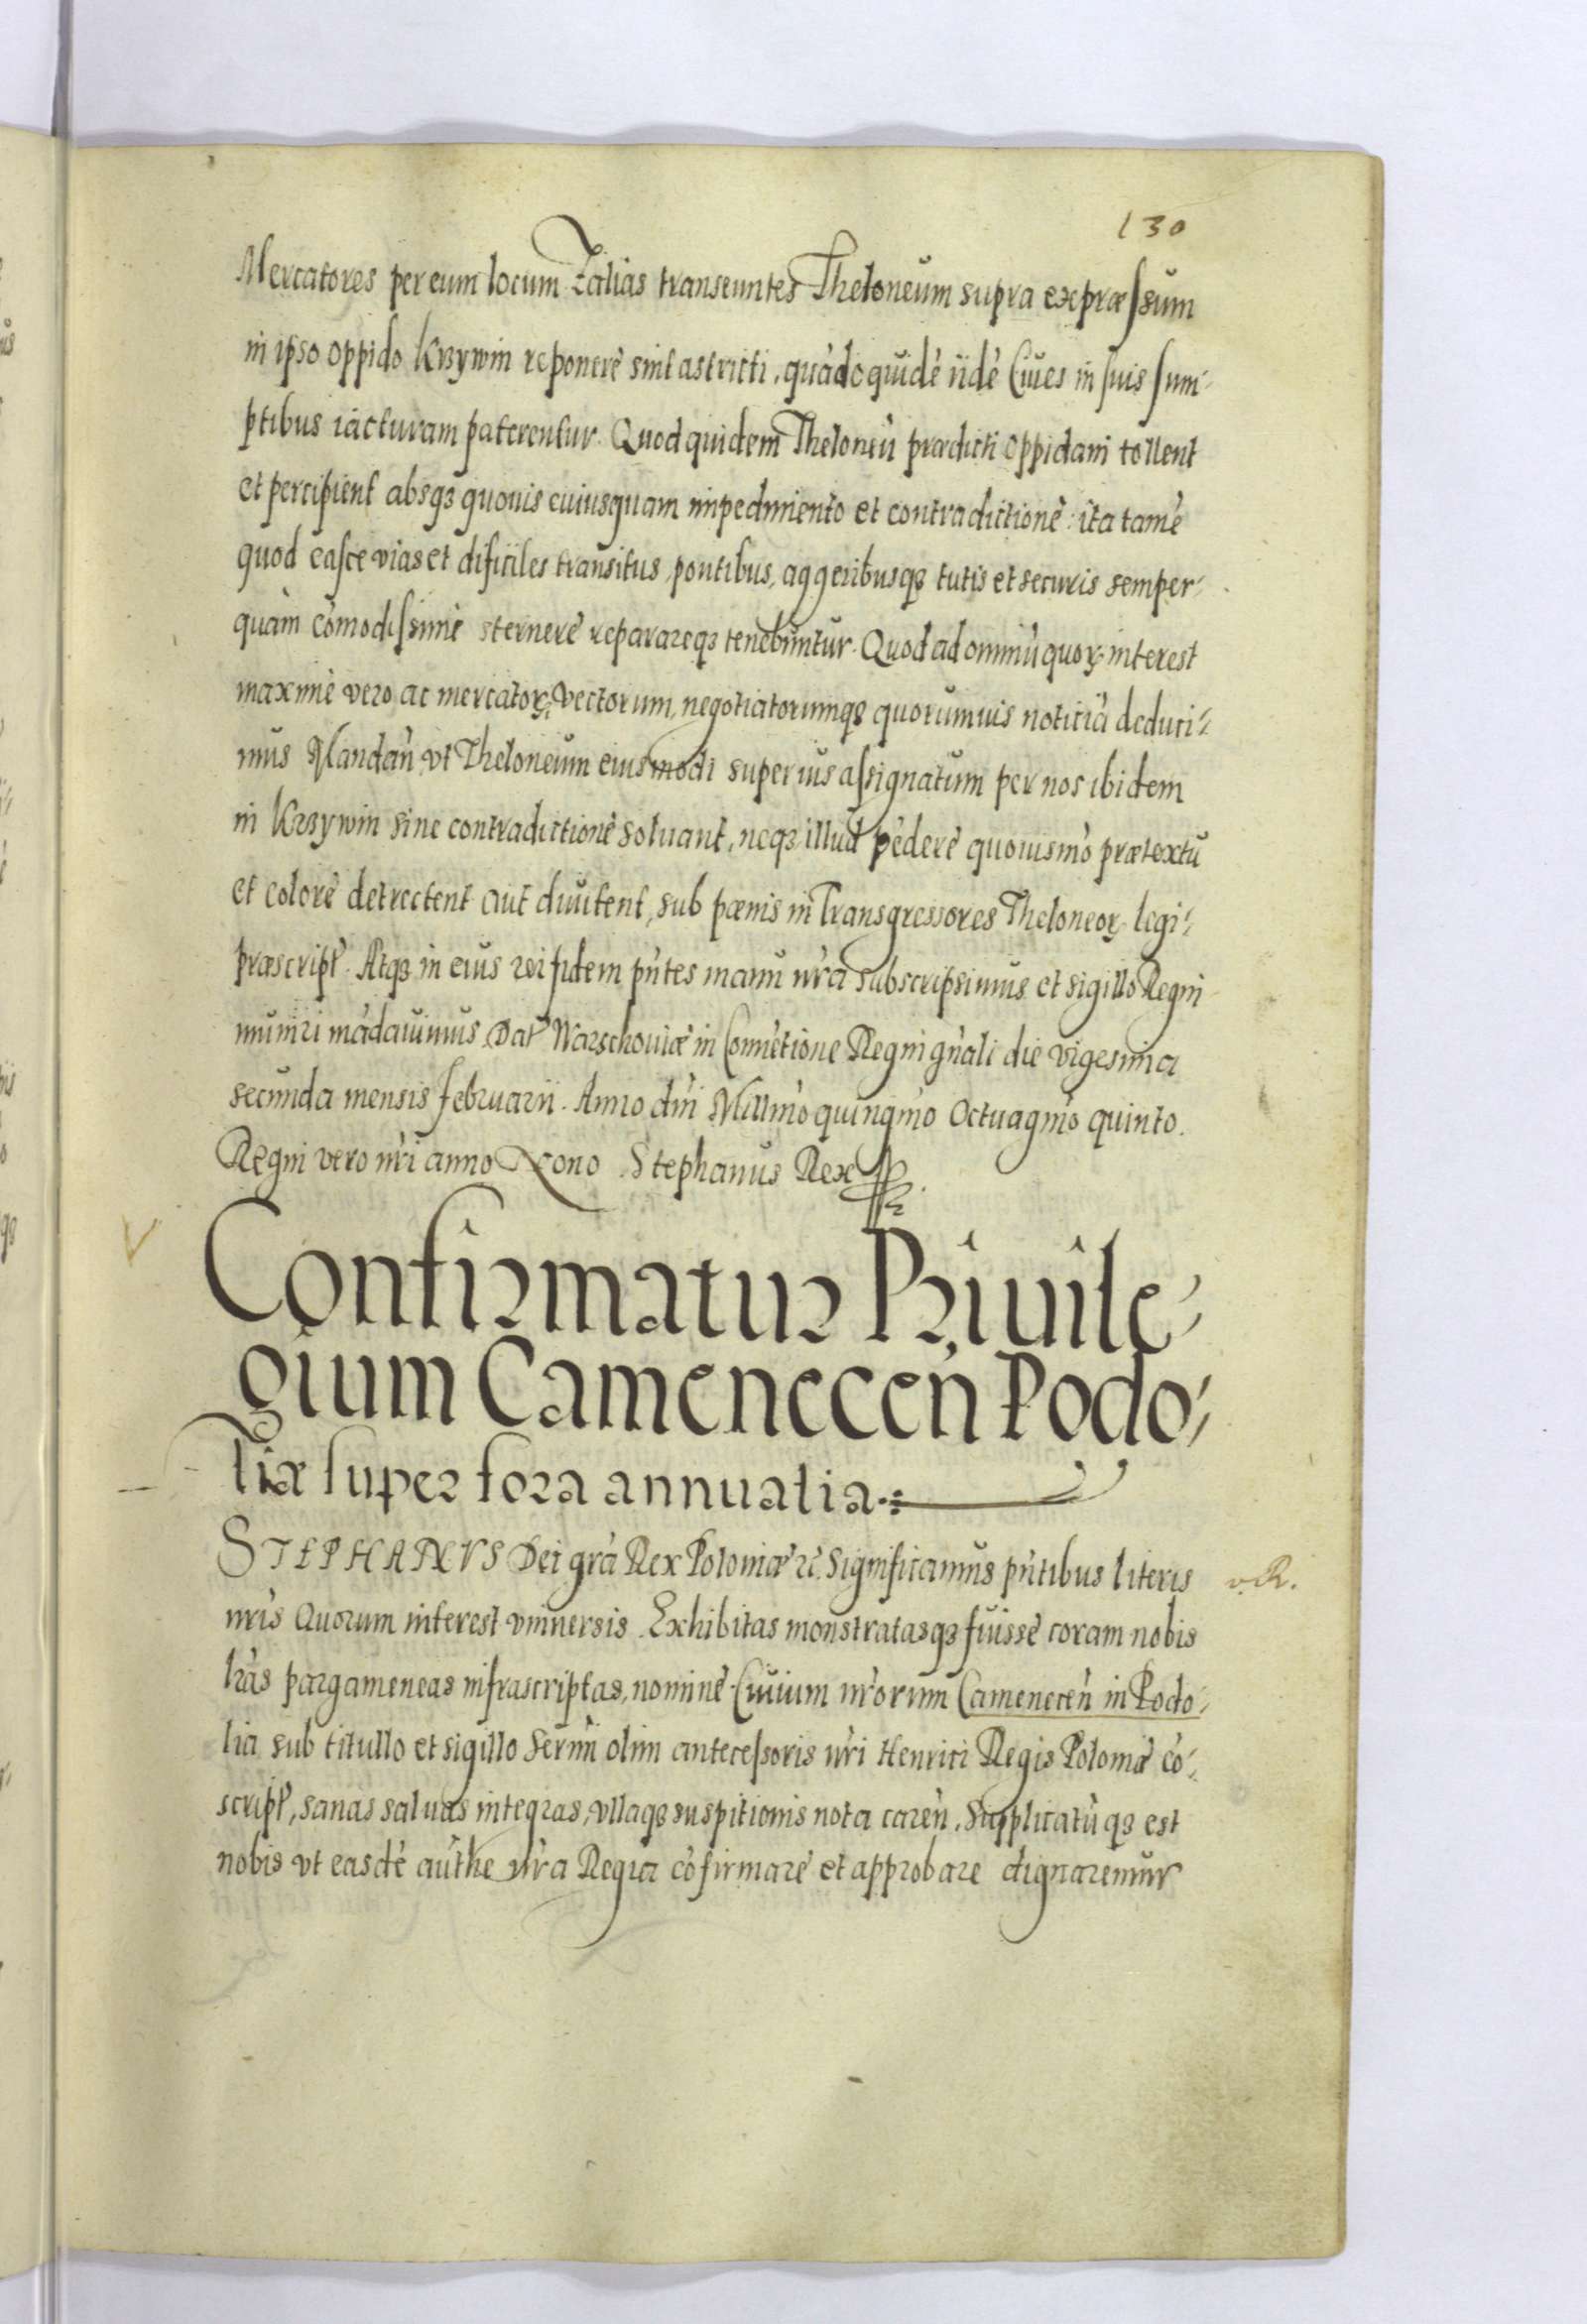 130
Mercatores per eum locum Zalias transeuntes Theloneum supra expræssum
in ipso oppido Krzywin reponerè sint astricti, quàdo quidè iidè Ciues in suis sum-
ptibus iacturam paterentur. Quod quidem Theloneù prædicti oppidani tollent
et percipient absqȝ quouis cuiusquam impedimento et contradictionè: ita tamè
quod easce vias et dificiles transitus, pontibus, aggeribusqȝ tutis et securis semper
quàm còmodissimè sternerè reparareqȝ tenebuntur. Quod ad omniù quoꝝ interest
maximè vero ac mercatoꝝ, vectorum, negotiatorumqȝ quorumuis noticià deduci-
mus Mandan̄ vt Theloneum eiusmodi superius assignatum per nos ibidem
in Krzywin sine contradictionè soluant, neqȝ illud pèderè quouismò prætextu
et colorè detrectent aut diuitent, sub pœnis in Transgressores Theloneoꝝ legi-
præscript. Atqȝ in eius rei fidem pn̄tes manu nr̄a subscripsimus et sigillo Regni
muniri màdauimus Dat Warschouiæ in Conuètione Regni gn̄ali die vigesima
secunda mensis februarii. Anno dn̄i Millmò quingmò Octuagmò quinto.
Regni vero nr̄i anno Nono. Stephanus Rex
V
Confirmatur Priuile-
gium Camenecen̄ Podo-
liæ super fora annualia.
STEPHANVS Dei grà Rex Poloniæ ꝛc̄. Significamus pn̄tibus literis
v. R.
nr̄is Quorum interest vniuersis. Exhibitas monstratasqȝ fuissè coram nobis
lr̄as pargameneas infrascriptas, nominè Ciuium nr̄orum Camenecen̄ in Podo-
lia sub titullo et sigillo Sermi olim antecessoris nr̄i Henrici Regis Poloniæ cò-
script, sanas saluas integras, vllaqȝ suspitionis nota caren̄. Supplicatù qȝ est
nobis vt easdè authe nr̄a Regia còfirmarè et approbare dignaremur